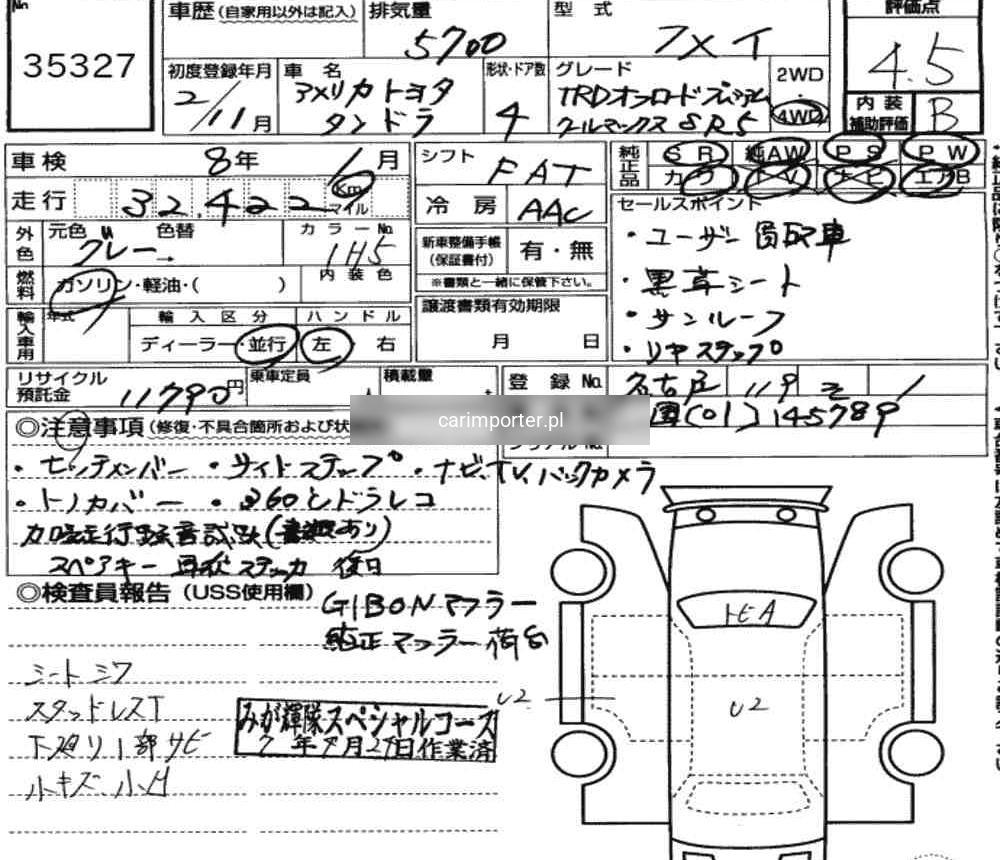 No
35327
車歴 (自家用以外は記入)
排気量
5700
型式
フメイ
評価点
4.5
初度登録年月
2/11月
車名
アメリカトヨタ
タンドラ
形状・ドア数
4
グレード
TRDオフロードプレミアム
クールマックス SR5
2WD
4WD
内装
補助評価
B
車検
8年
月
走行
32,422
Km
マイル
シフト
FAT
冷房
AAC
純正品
SR
純AW
PS
PW
カワ
TV
ナビ
エアB
外色
元色
グレー
色替
→
カラーNo.
1H5
内装色
新車整備手帳
(保証書付)
有・無
※書類と一緒に保管下さい。
セールスポイント
・ユーザー買取車
・黒革シート
・サンルーフ
・リヤステップ
燃料
ガソリン・軽油・( )
輸入車用
年式
輸入区分
ディーラー・並行
ハンドル
左 右
譲渡書類有効期限
月 日
リサイクル
預託金
11790円
乗車定員
人
積載量
登録No.
名古屋
119
1
国[01]145789
carimporter.pl
◎注意事項 (修復・不具合箇所および状
・センテメンバー ・サイドステップ ・ナビ、TV、バックカメラ
・トノカバー ・360°ドラレコ
加速走行騒音試験(書類あり)
スペアキー 再秋ステッカ 後日
◎検査員報告 (USS使用欄)
GIBONマフラー
純正マフラー荷台
シートシワ
スタッドレスT
下廻り1部サビ
小キズ、小凹
みが輝隊スペシャルコース
7年 月27日作業済
U2
トビA
U2